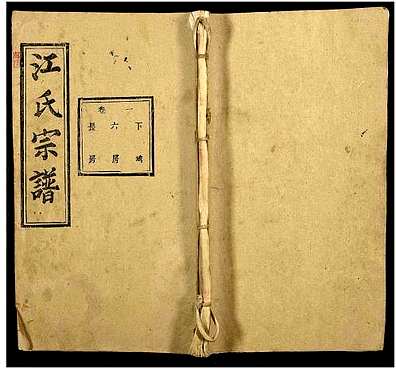 江氏宗譜
卷一
長房
六房
下